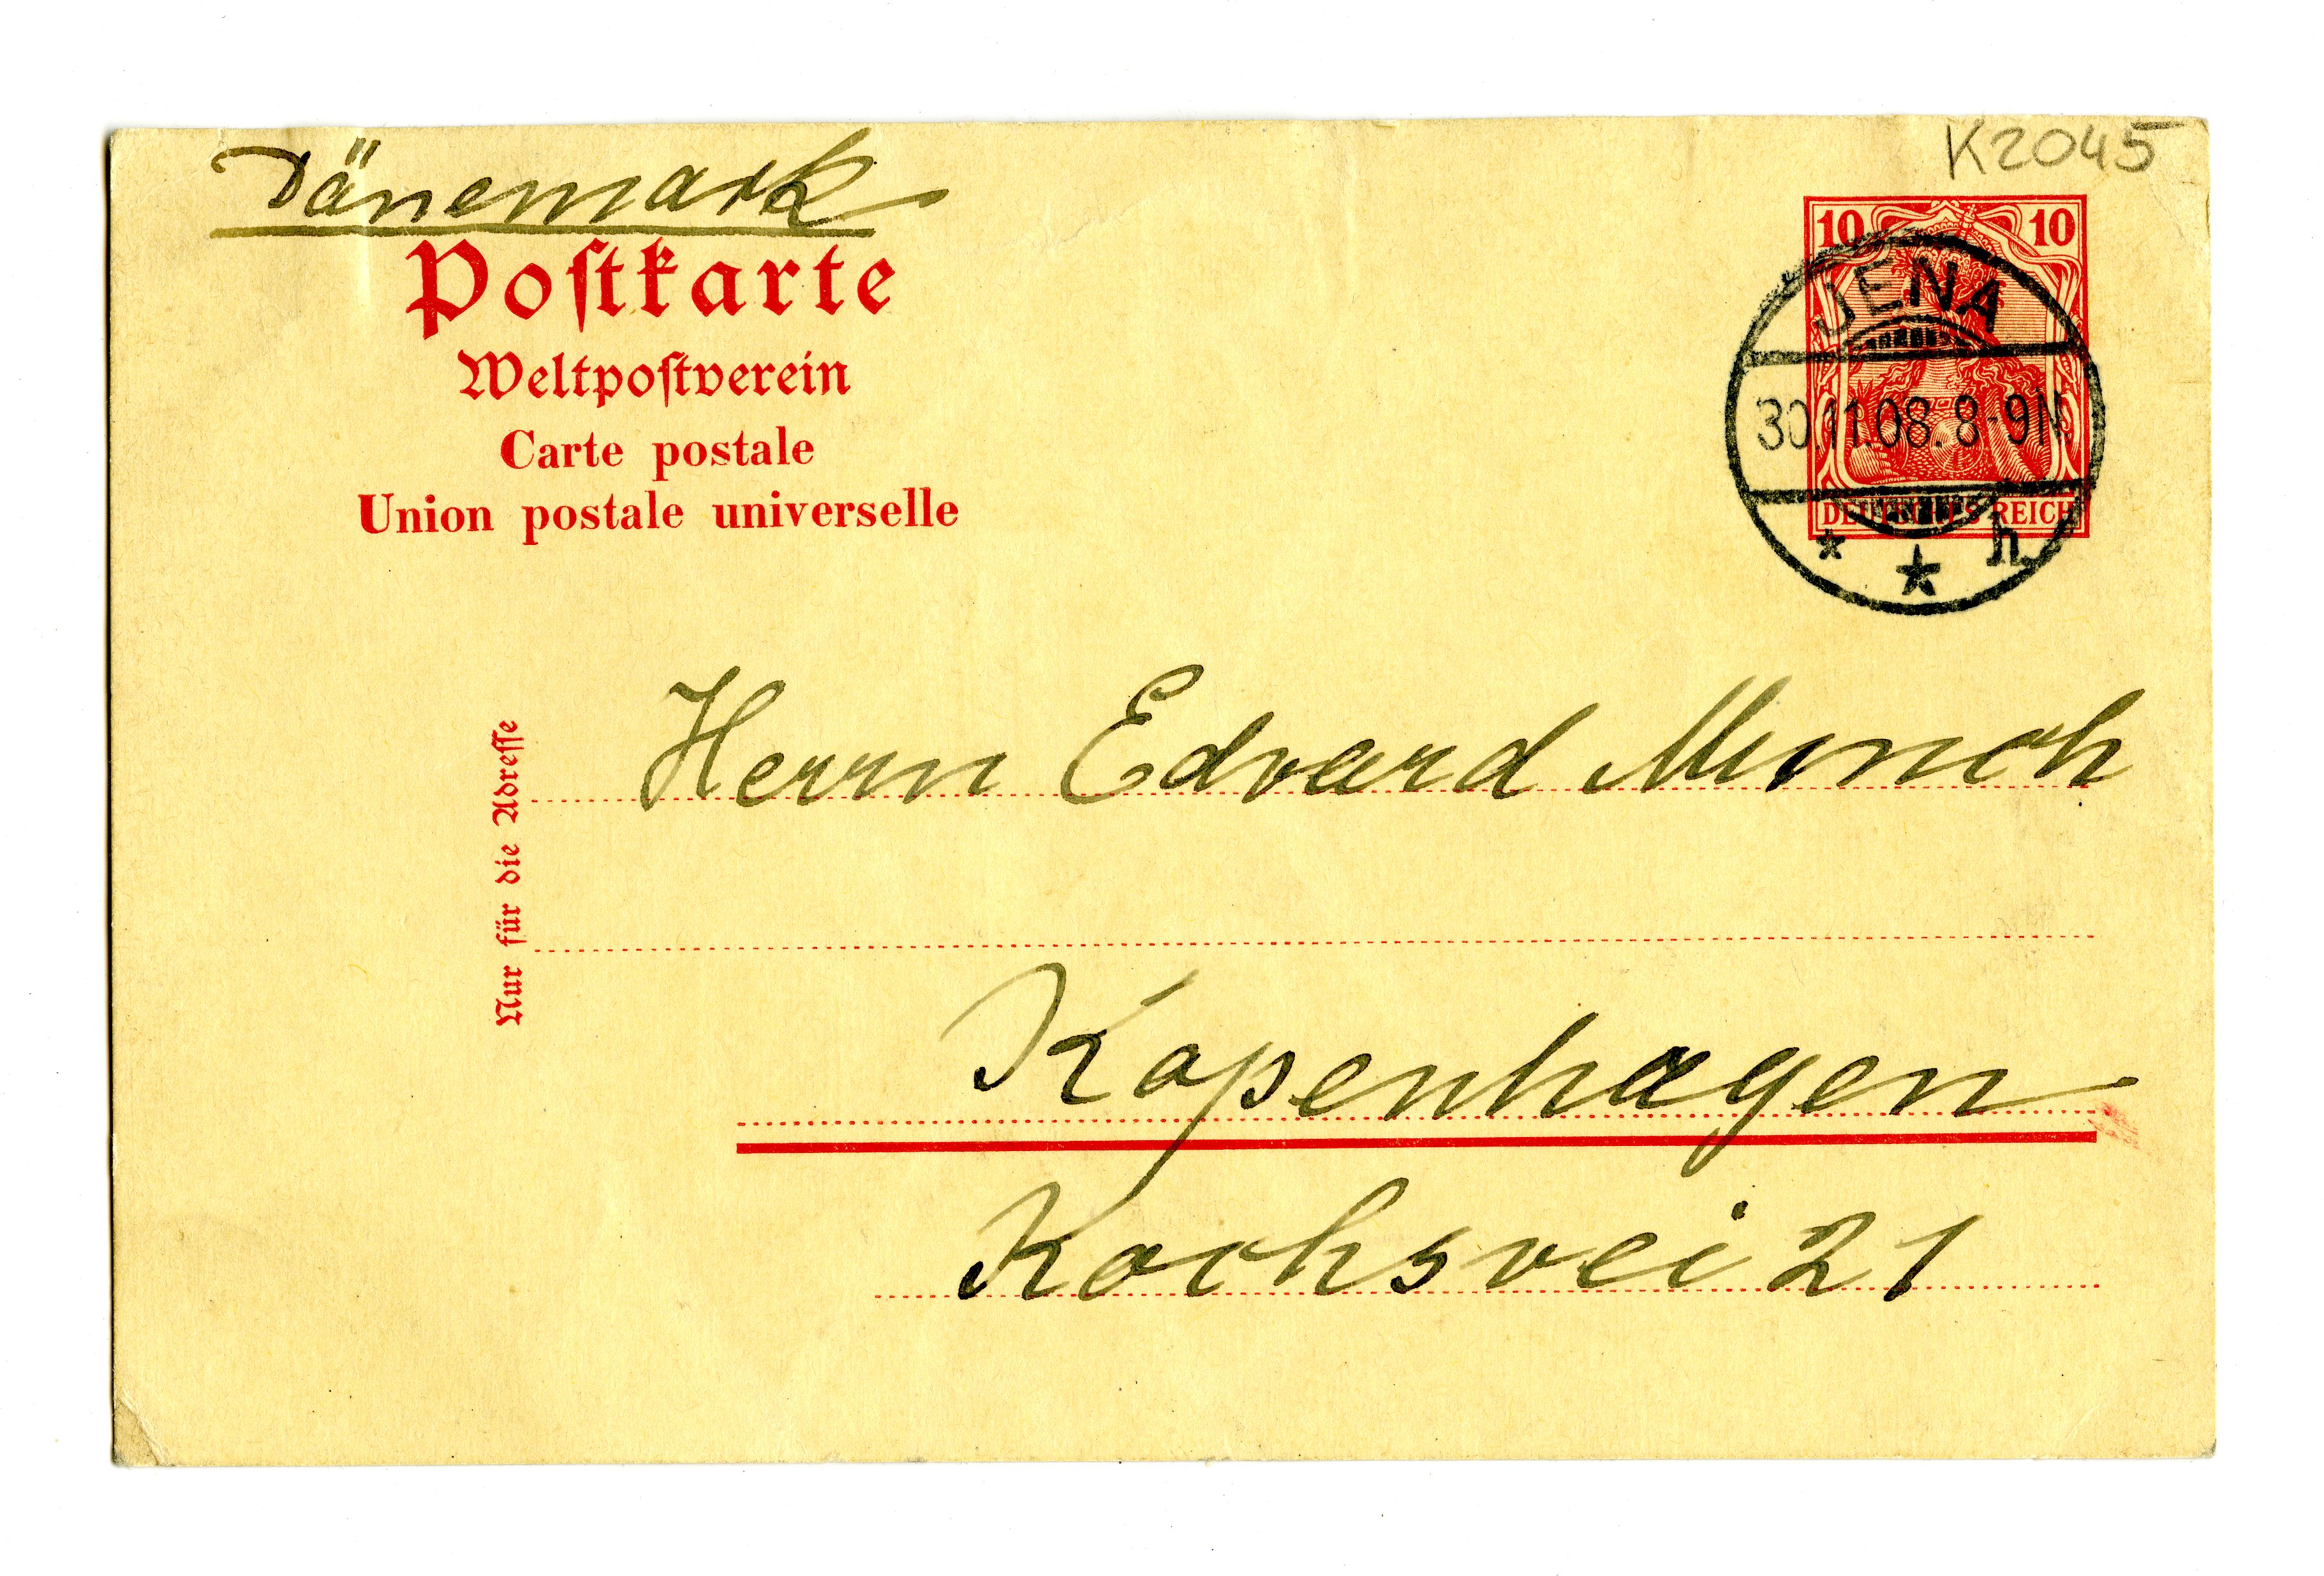 K2045
Dänemark
Postkarte
Weltpostverein
Carte postale
Union postale universelle
10 10
DEUTSCHES REICH
JENA
30.11.08. 8-9N
* * h
Nur für die Adresse
Herrn Edvard Munch
Kopenhagen
Kochsvei 21